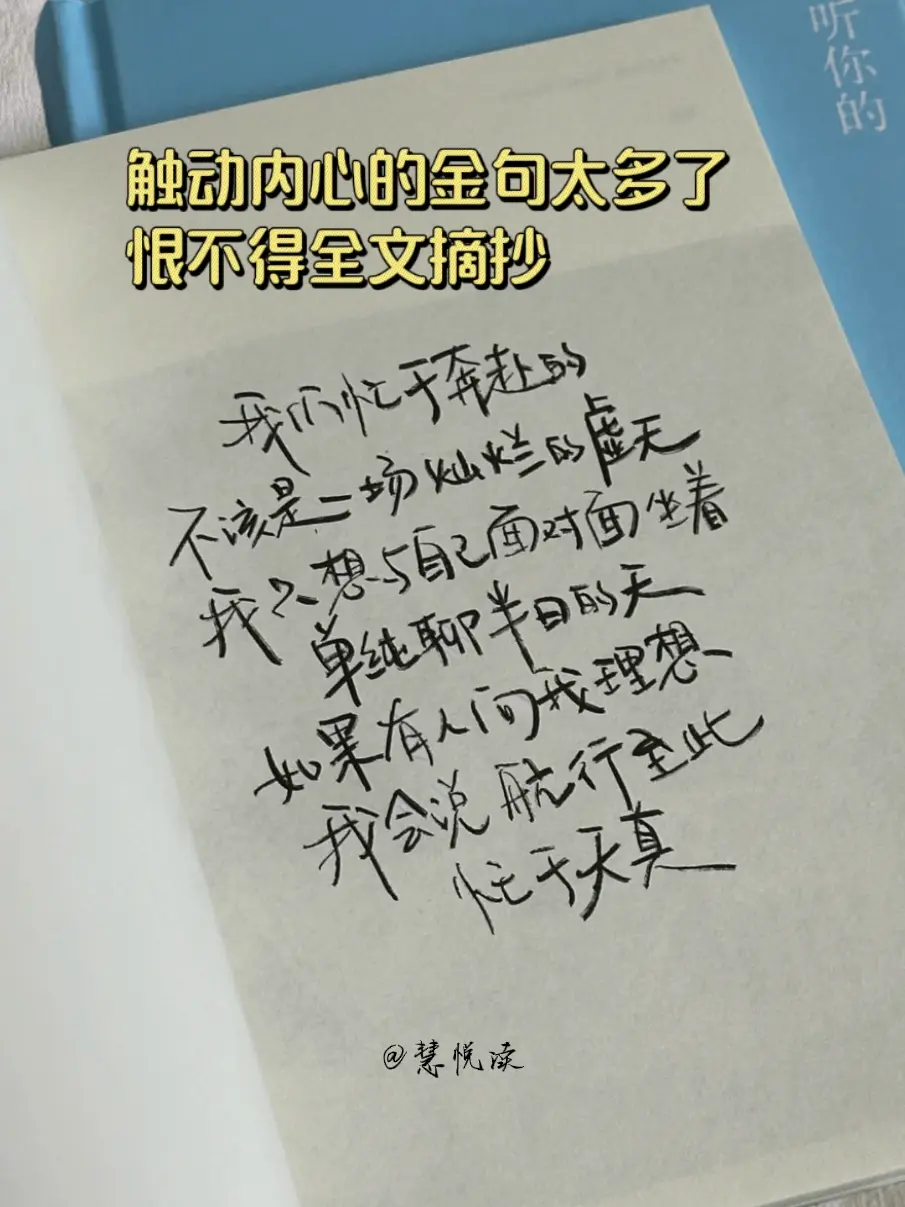 听你的
触动内心的金句太多了
恨不得全文摘抄
我们忙于奔赴的
不该是一场灿烂的虚无
我只想与自己面对面坐着
单纯聊半日的天
如果有人问我理想
我会说航行至此
忙于天真
@慧悦读